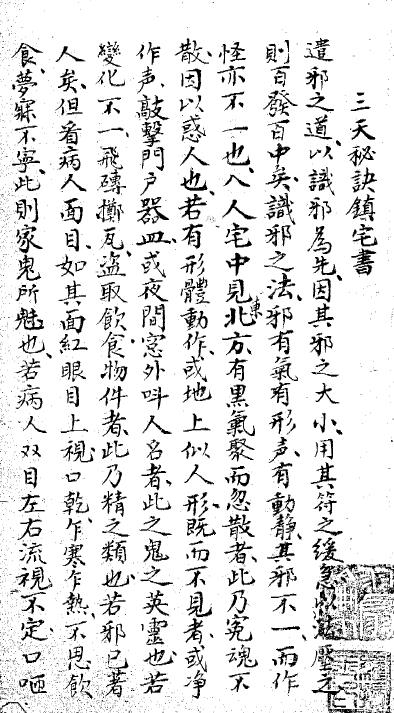 三天秘訣鎮宅書
遣邪之道、以識邪為先、因其邪之大小、用其符之緩急以鎮壓之
則百發百中矣、識邪之法、邪有氣有形声、有動静、其邪不一、而作
怪亦不一也、入人宅中、見東北方、有黒氣聚而忽散者、此乃冤魂不
散、因以惑人也、若有形體動作、或地上似人形、既而不見者、或净
作声、敲擊門戸器皿、或夜間窓外呌人名者、此之鬼之英靈也、若
變化不一、飛磚擲瓦、盜取飲食物件者、此乃精之類也、若邪已著
人矣、但看病人面目、如其面紅眼目上視、口乾、乍寒乍熱、不思飲
食、夢寐不寧、此則家鬼所魅也、若病人双目左右流視不定、口咂